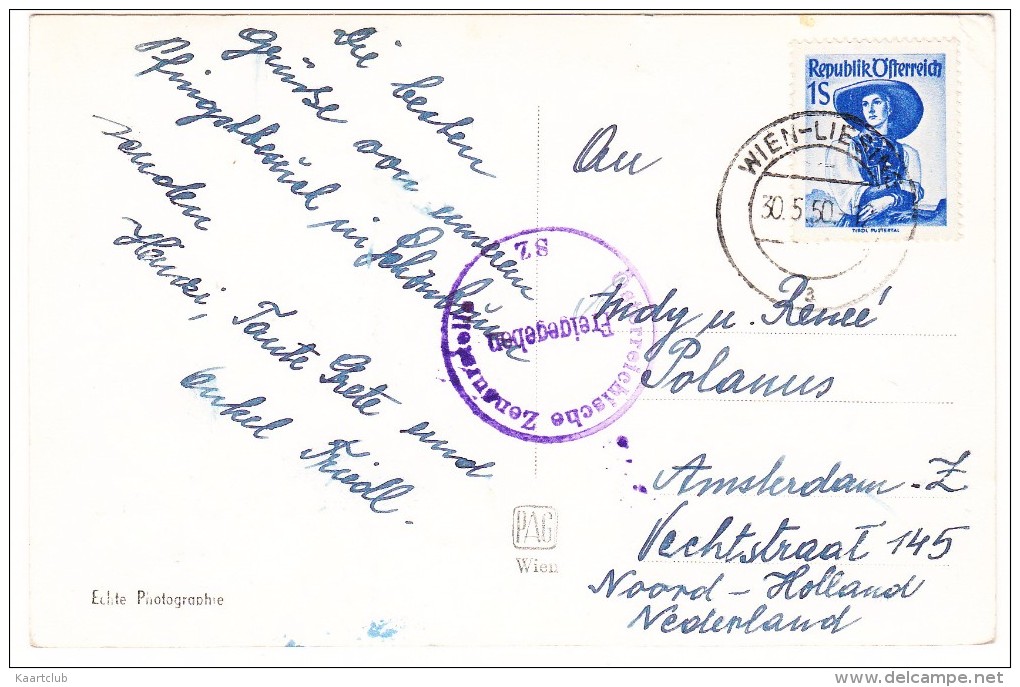 Die besten
Grüße von unserem
Pfingstbesuch in Schönbrunn
senden
Hansi, Tante Grete und
Onkel Friedl.
Echte Photographie
PAG
Wien
Republik Österreich
1S
TIROL PUSTERTAL
WIEN-LIESING
30.5.50
a
Österreichische Zensurstelle
Freigegeben
SZ
An
Andy u. Reneé
Polanus
Amsterdam-Z
Vechtstraat 145
Noord-Holland
Nederland
Kaartclub
www.delcampe.net